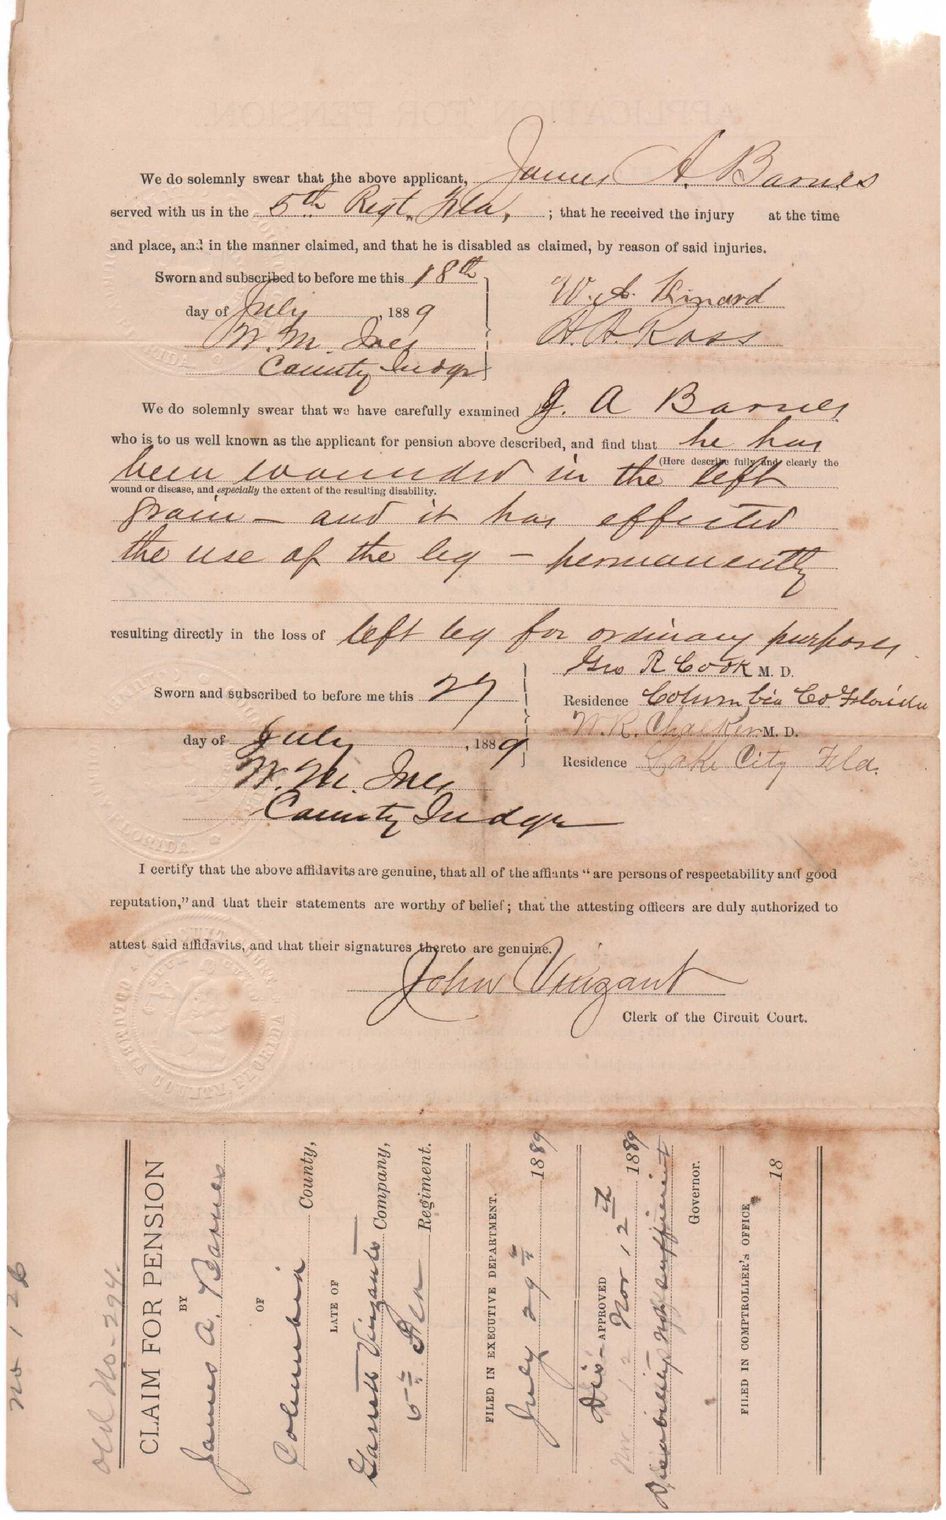 We do solemnly swear that the above applicant, James A. Barnes
served with us in the 5th Regt. Fla, ; that he received the injury at the time
and place, and in the manner claimed, and that he is disabled as claimed, by reason of said injuries.
Sworn and subscribed to before me this 18th
day of July , 1889
W. M. Ives
County Judge
W. A. Kinard
A. A. Ross
We do solemnly swear that we have carefully examined J. A Barnes
who is to us well known as the applicant for pension above described, and find that he has
(Here describe fully and clearly the
been wounded in the left
wound or disease, and especially the extent of the resulting disability.
groin – and it has effected
the use of the leg – permanently
resulting directly in the loss of left leg for ordinary purposes
Sworn and subscribed to before me this 27
day of July , 1889
W. M. Ives
County Judge
Geo R Cook M. D.
Residence Columbia Co Florida
W. R. Chalker M. D.
Residence Lake City Fla.
I certify that the above affidavits are genuine, that all of the affiants " are persons of respectability and good
reputation," and that their statements are worthy of belief ; that the attesting officers are duly authorized to
attest said affidavits, and that their signatures thereto are genuine.
John Vinzant
Clerk of the Circuit Court.
COLUMBIA COUNTY, FLORIDA
No 126
Old No-294.
CLAIM FOR PENSION
BY
James A. Barnes
OF
Columbia County,
LATE OF
Garrett Vinzants Company,
5th Fla Regiment.
FILED IN EXECUTIVE DEPARTMENT.
July 29th 1889
Dis-APPROVED
Nov 12th 1889
Disability not sufficient
Governor.
FILED IN COMPTROLLER'S OFFICE,
18